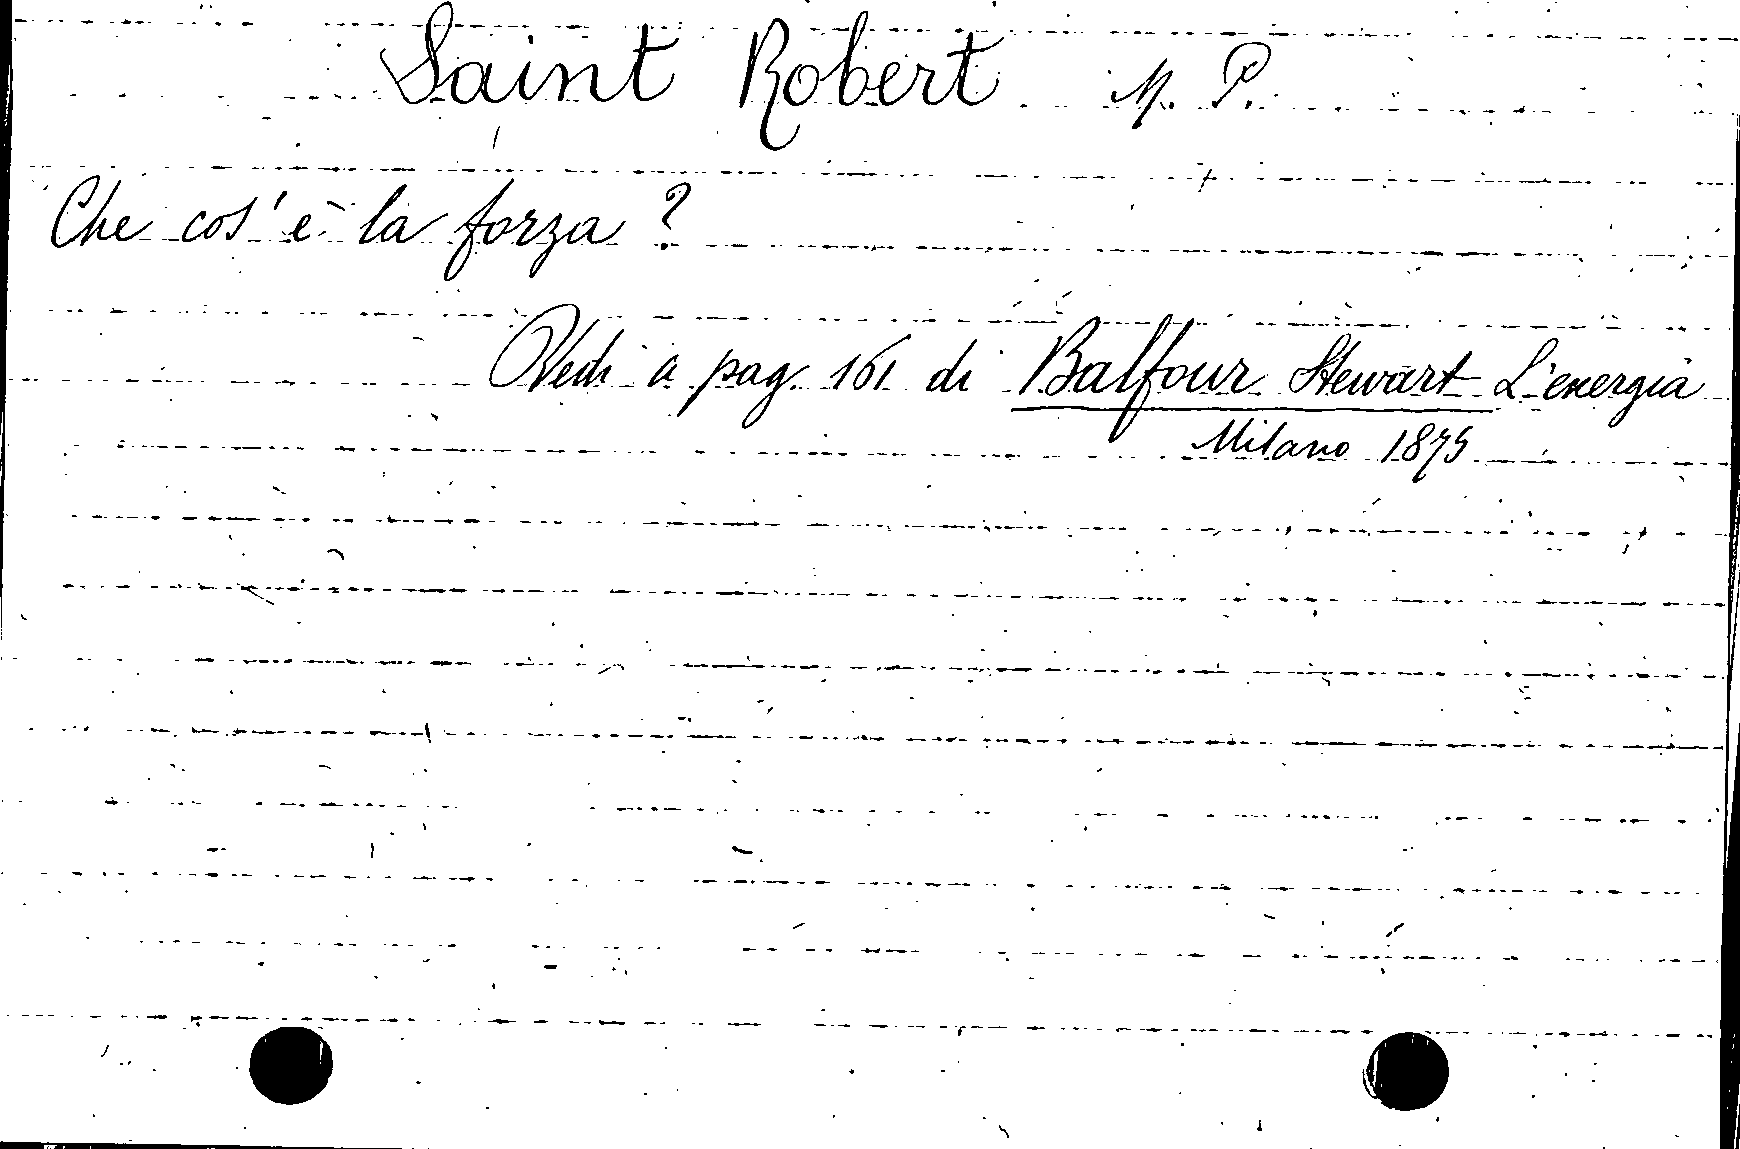 Saint Robert M. P.
Che cos'è la forza?
Vedi a pag. 161 di Balfour Stewart L'energia
Milano 1875